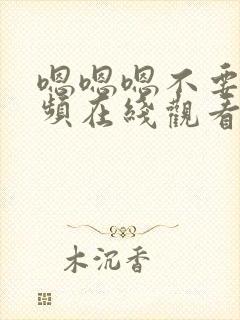 嗯嗯嗯不要
頻在綫觀看
木沉香